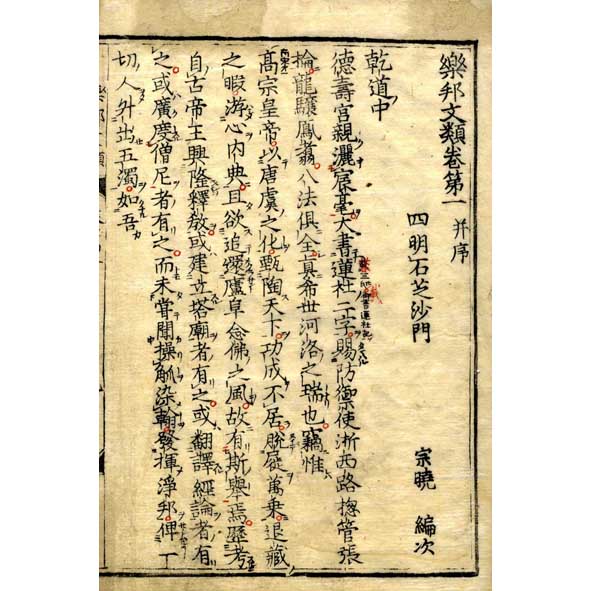 樂邦文類卷第一 并序
四明石芝沙門 宗曉 編次
乾道中
德壽宮親灑宸毫大書蓮社二字賜防禦使浙西路揔管張
掄龍驤鳳翥八法俱全真希世河洛之瑞也竊惟
高宗皇帝以唐虞之化甄陶天下功成不居脫屣萬乗退藏
之暇游心内典且欲追蹤廬阜念佛之風故有斯舉焉歷考
自古帝王興隆釋教或建立塔廟者有之或翻譯經論者有
之或廣度僧尼者有之而未甞聞操觚染翰發揮淨邦俾一
切人外出五濁如吾